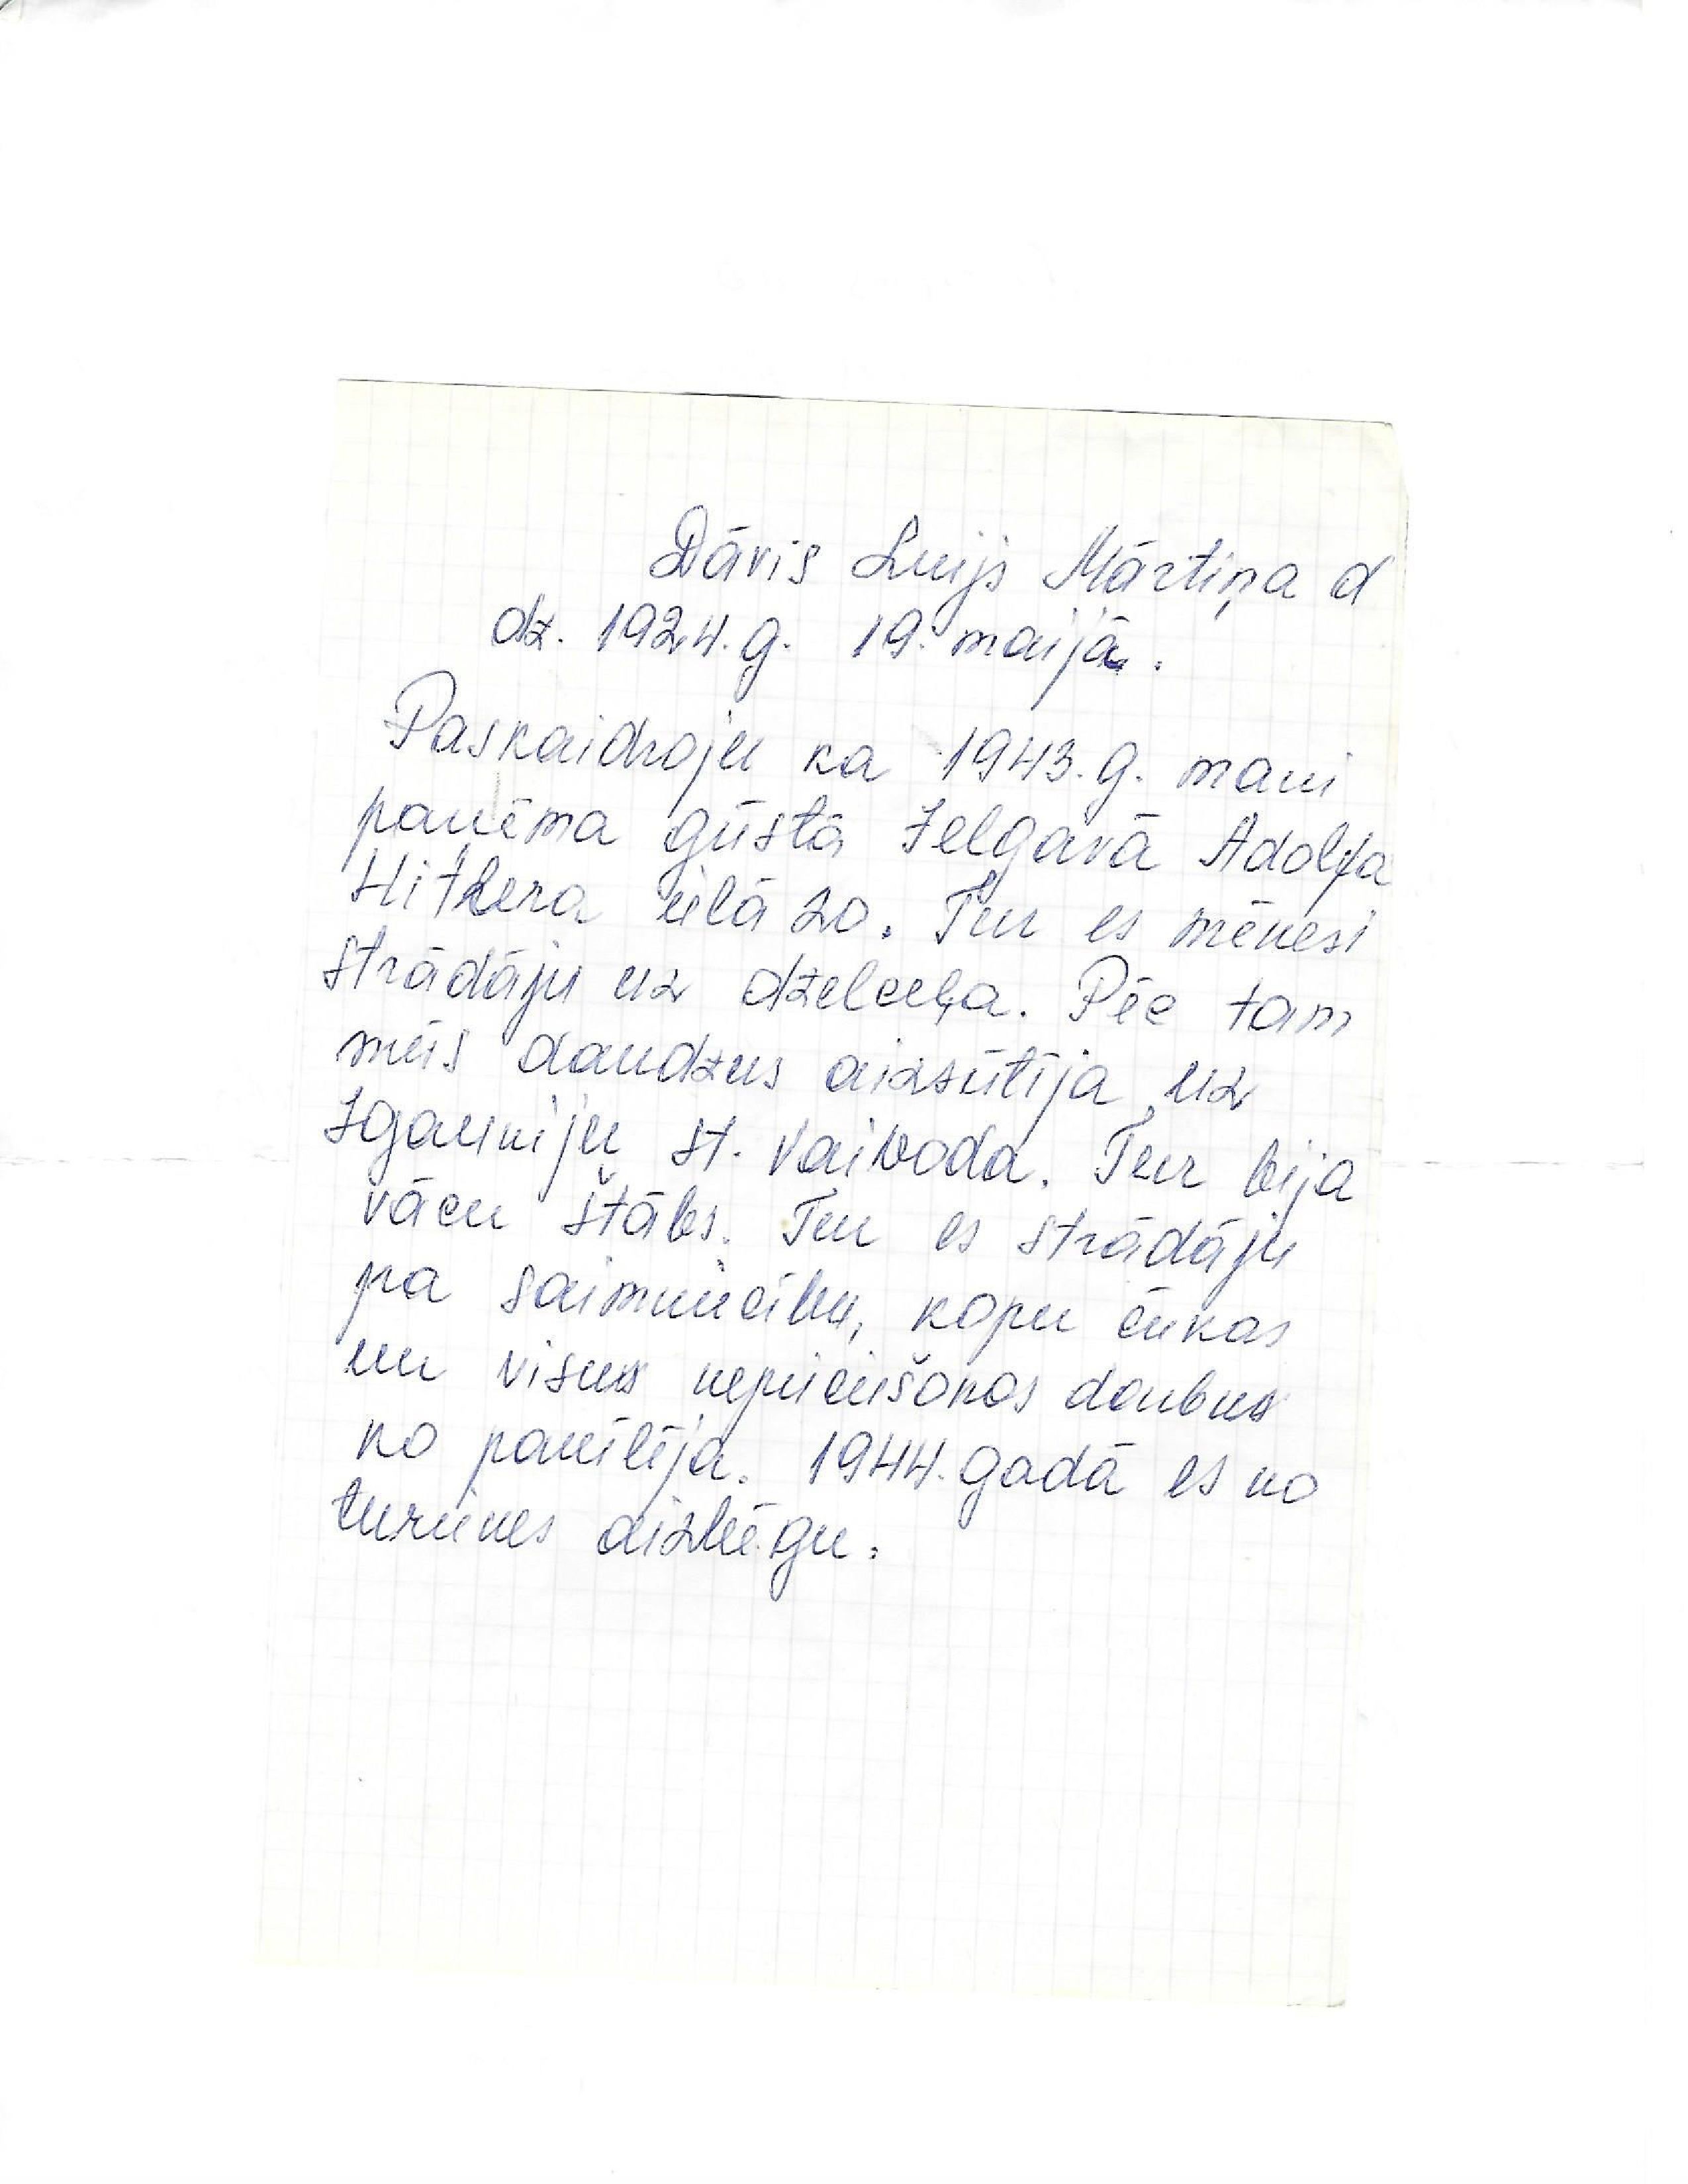 Dāvis Luijs Mārtiņa d
dz. 1924. g. 19. maijā.
Paskaidroju ka 1943. g. mani
paņēma gūstā Jelgavā Adolfa
Hitlera ielā 20. Tur es mēnesi
strādāju uz dzelceļa. Pēc tam
mūs daudzus aizsūtīja uz
Igauniju st. Vaivoda. Tur bija
vācu štābs. Tur es strādāju
pa saimniecību, kopu cūkas
un visus nepieciešamos darbus
ko pavēlēja. 1944. gadā es no
turienes aizbēgu.